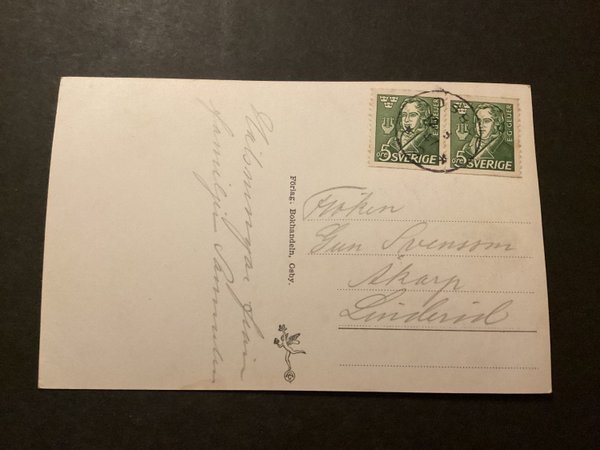 Hälsningar från
familjen
Förlag. Bokhandeln, Osby.
E·G·GEIJER
5 ÖRE
SVERIGE
E·G·GEIJER
5 ÖRE
SVERIGE
Fröken
Gun Svensson
Åkarp
Linderöd